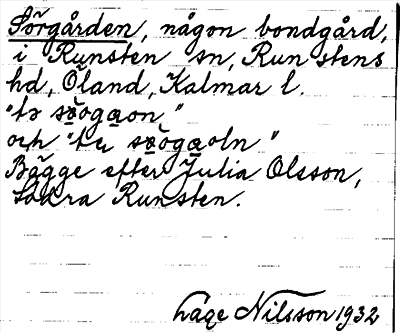 Sörgården, någon bondgård,
i Runsten sn, Runstens
hd, Öland, Kalmar l.
"tɘ sɘ̌ogaon"
och "tu sɘ̌ogaoln"
Bägge efter Julia Olsson,
Södra Runsten.
Lage Nilsson 1932